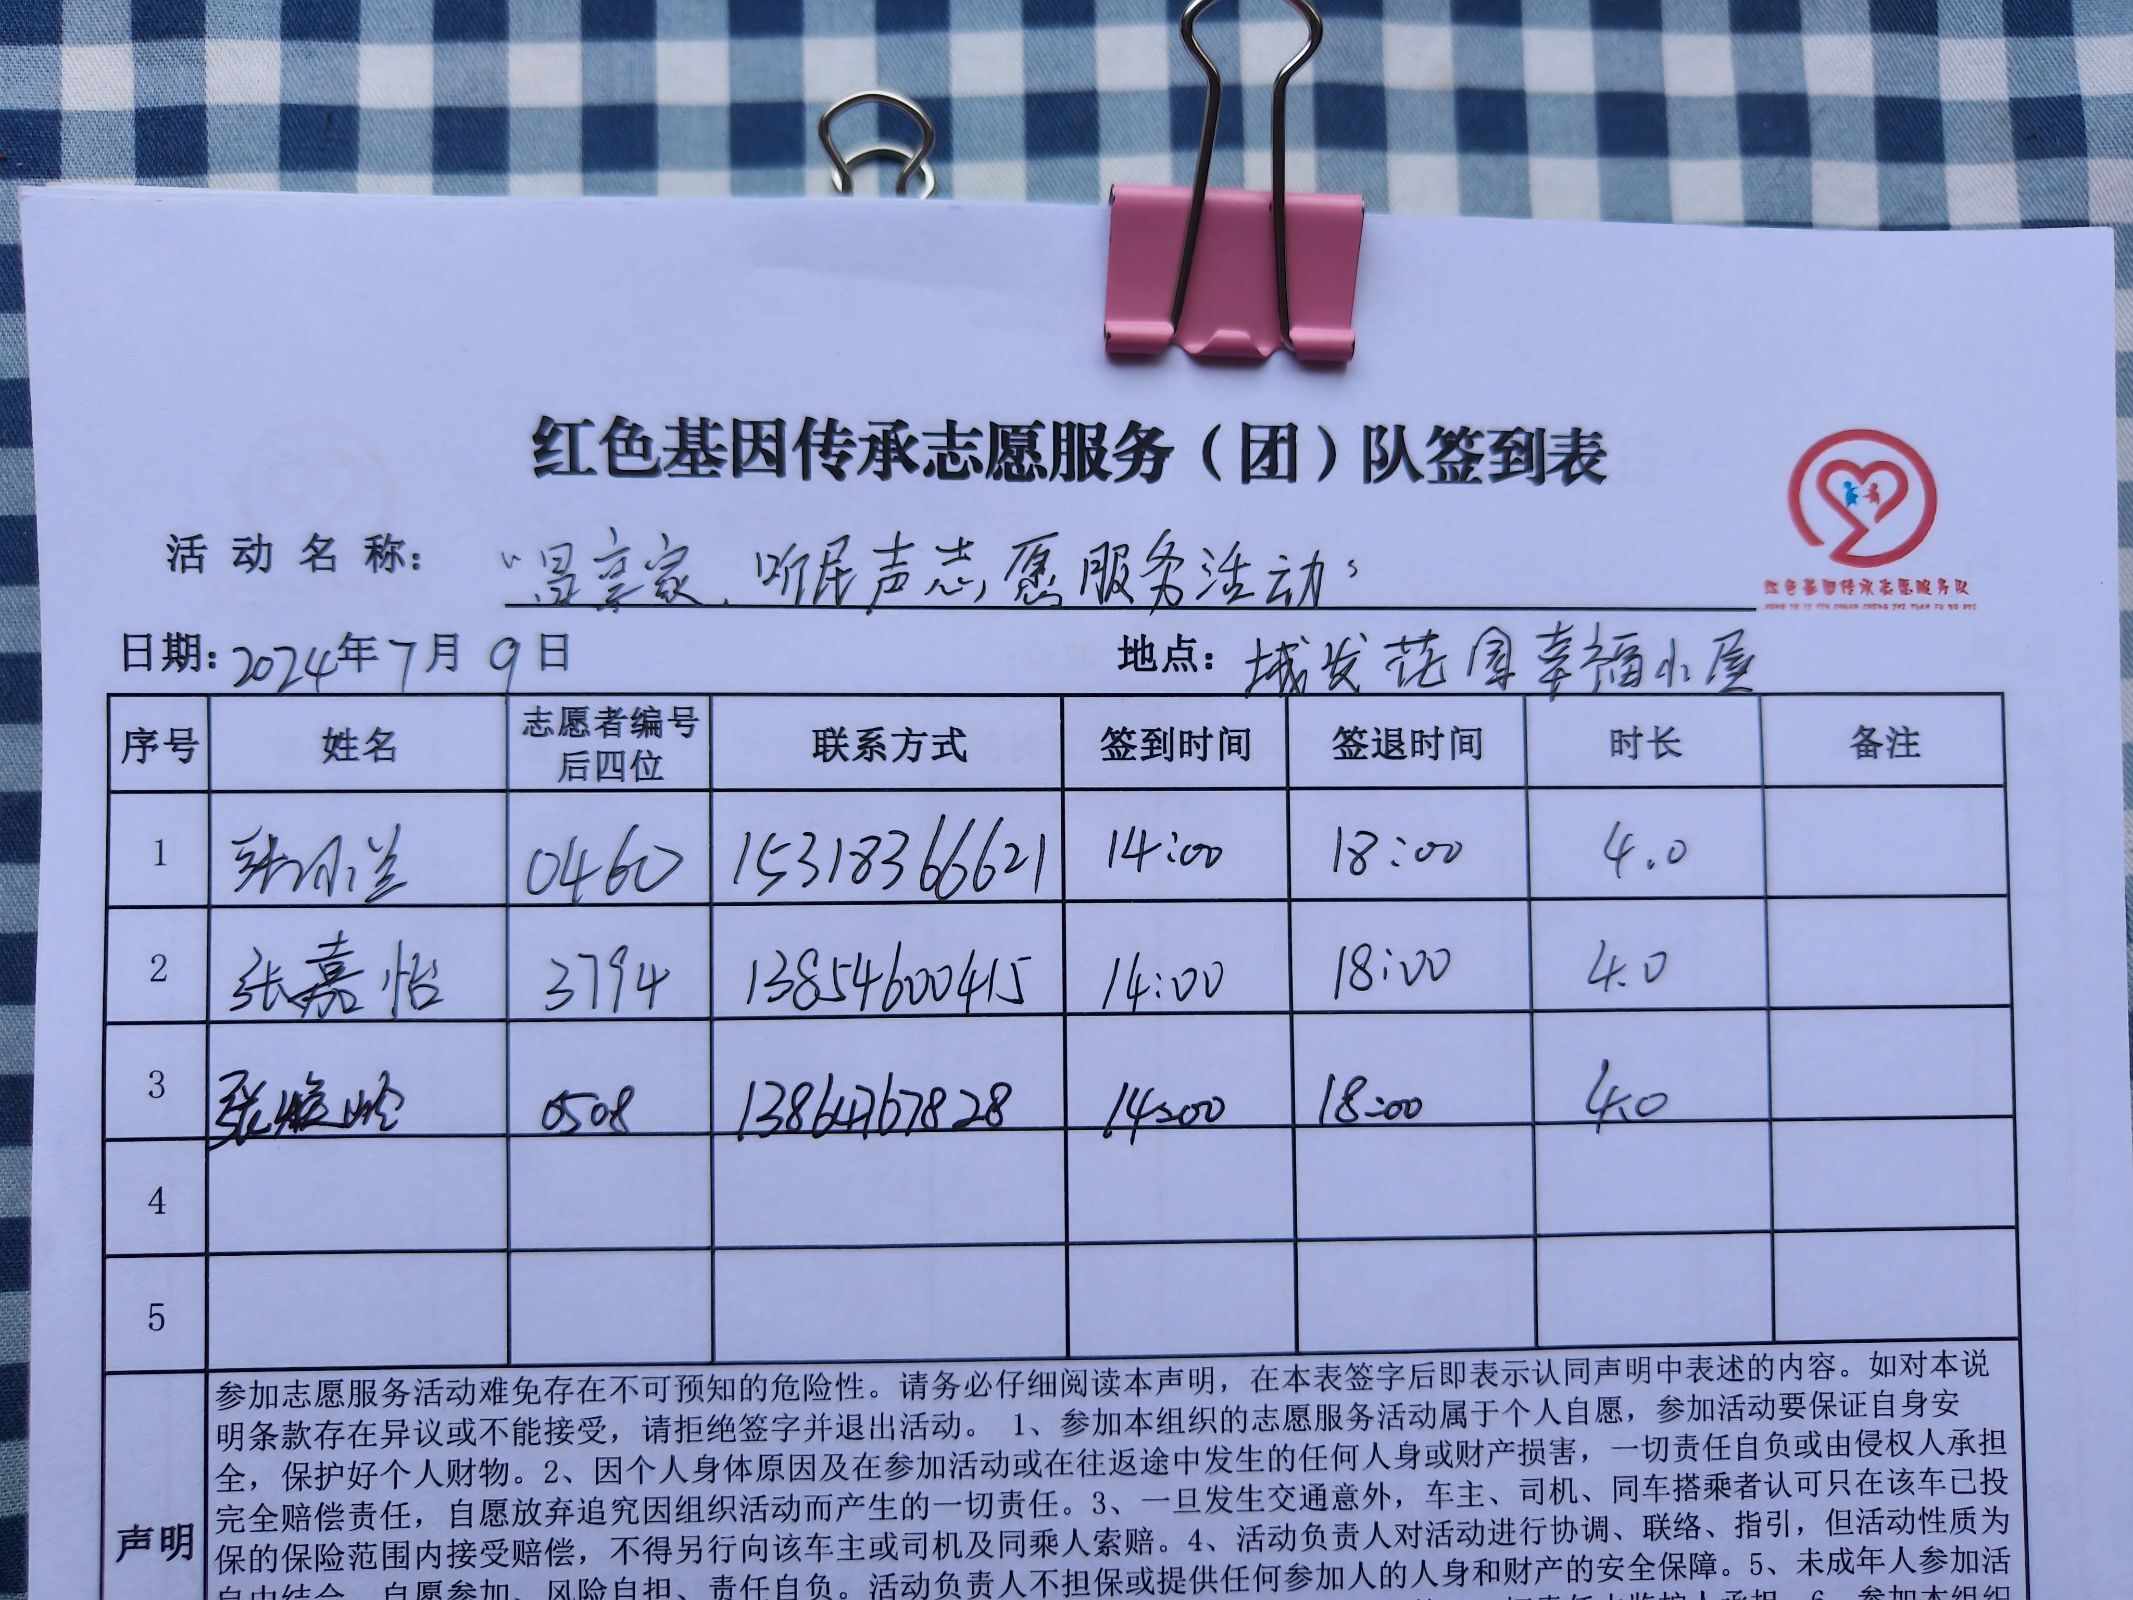 红色基因传承志愿服务（团）队签到表
活动名称： 家、听民声志愿服务活动
红色基因传承志愿服务队
日期：2024年7月9日 地点：城发花园幸福小屋
序号 姓名 志愿者编号后四位 联系方式 签到时间 签退时间 时长 备注
1 张 兰 0460 15318366621 14:00 18:00 4.0
2 张嘉怡 3794 13854600415 14:00 18:00 4.0
3 张 玲 0508 13864767828 14:00 18:00 4.0
4
5
参加志愿服务活动难免存在不可预知的危险性。请务必仔细阅读本声明，在本表签字后即表示认同声明中表述的内容。如对本说
明条款存在异议或不能接受，请拒绝签字并退出活动。 1、参加本组织的志愿服务活动属于个人自愿，参加活动要保证自身安
全，保护好个人财物。2、因个人身体原因及在参加活动或在往返途中发生的任何人身或财产损害，一切责任自负或由侵权人承担
完全赔偿责任，自愿放弃追究因组织活动而产生的一切责任。3、一旦发生交通意外，车主、司机、同车搭乘者认可只在该车已投
声明
保的保险范围内接受赔偿，不得另行向该车主或司机及同乘人索赔。4、活动负责人对活动进行协调、联络、指引，但活动性质为
自由结合、自愿参加、风险自担、责任自负。活动负责人不担保或提供任何参加人的人身和财产的安全保障。5、未成年人参加活
6、参加本组织